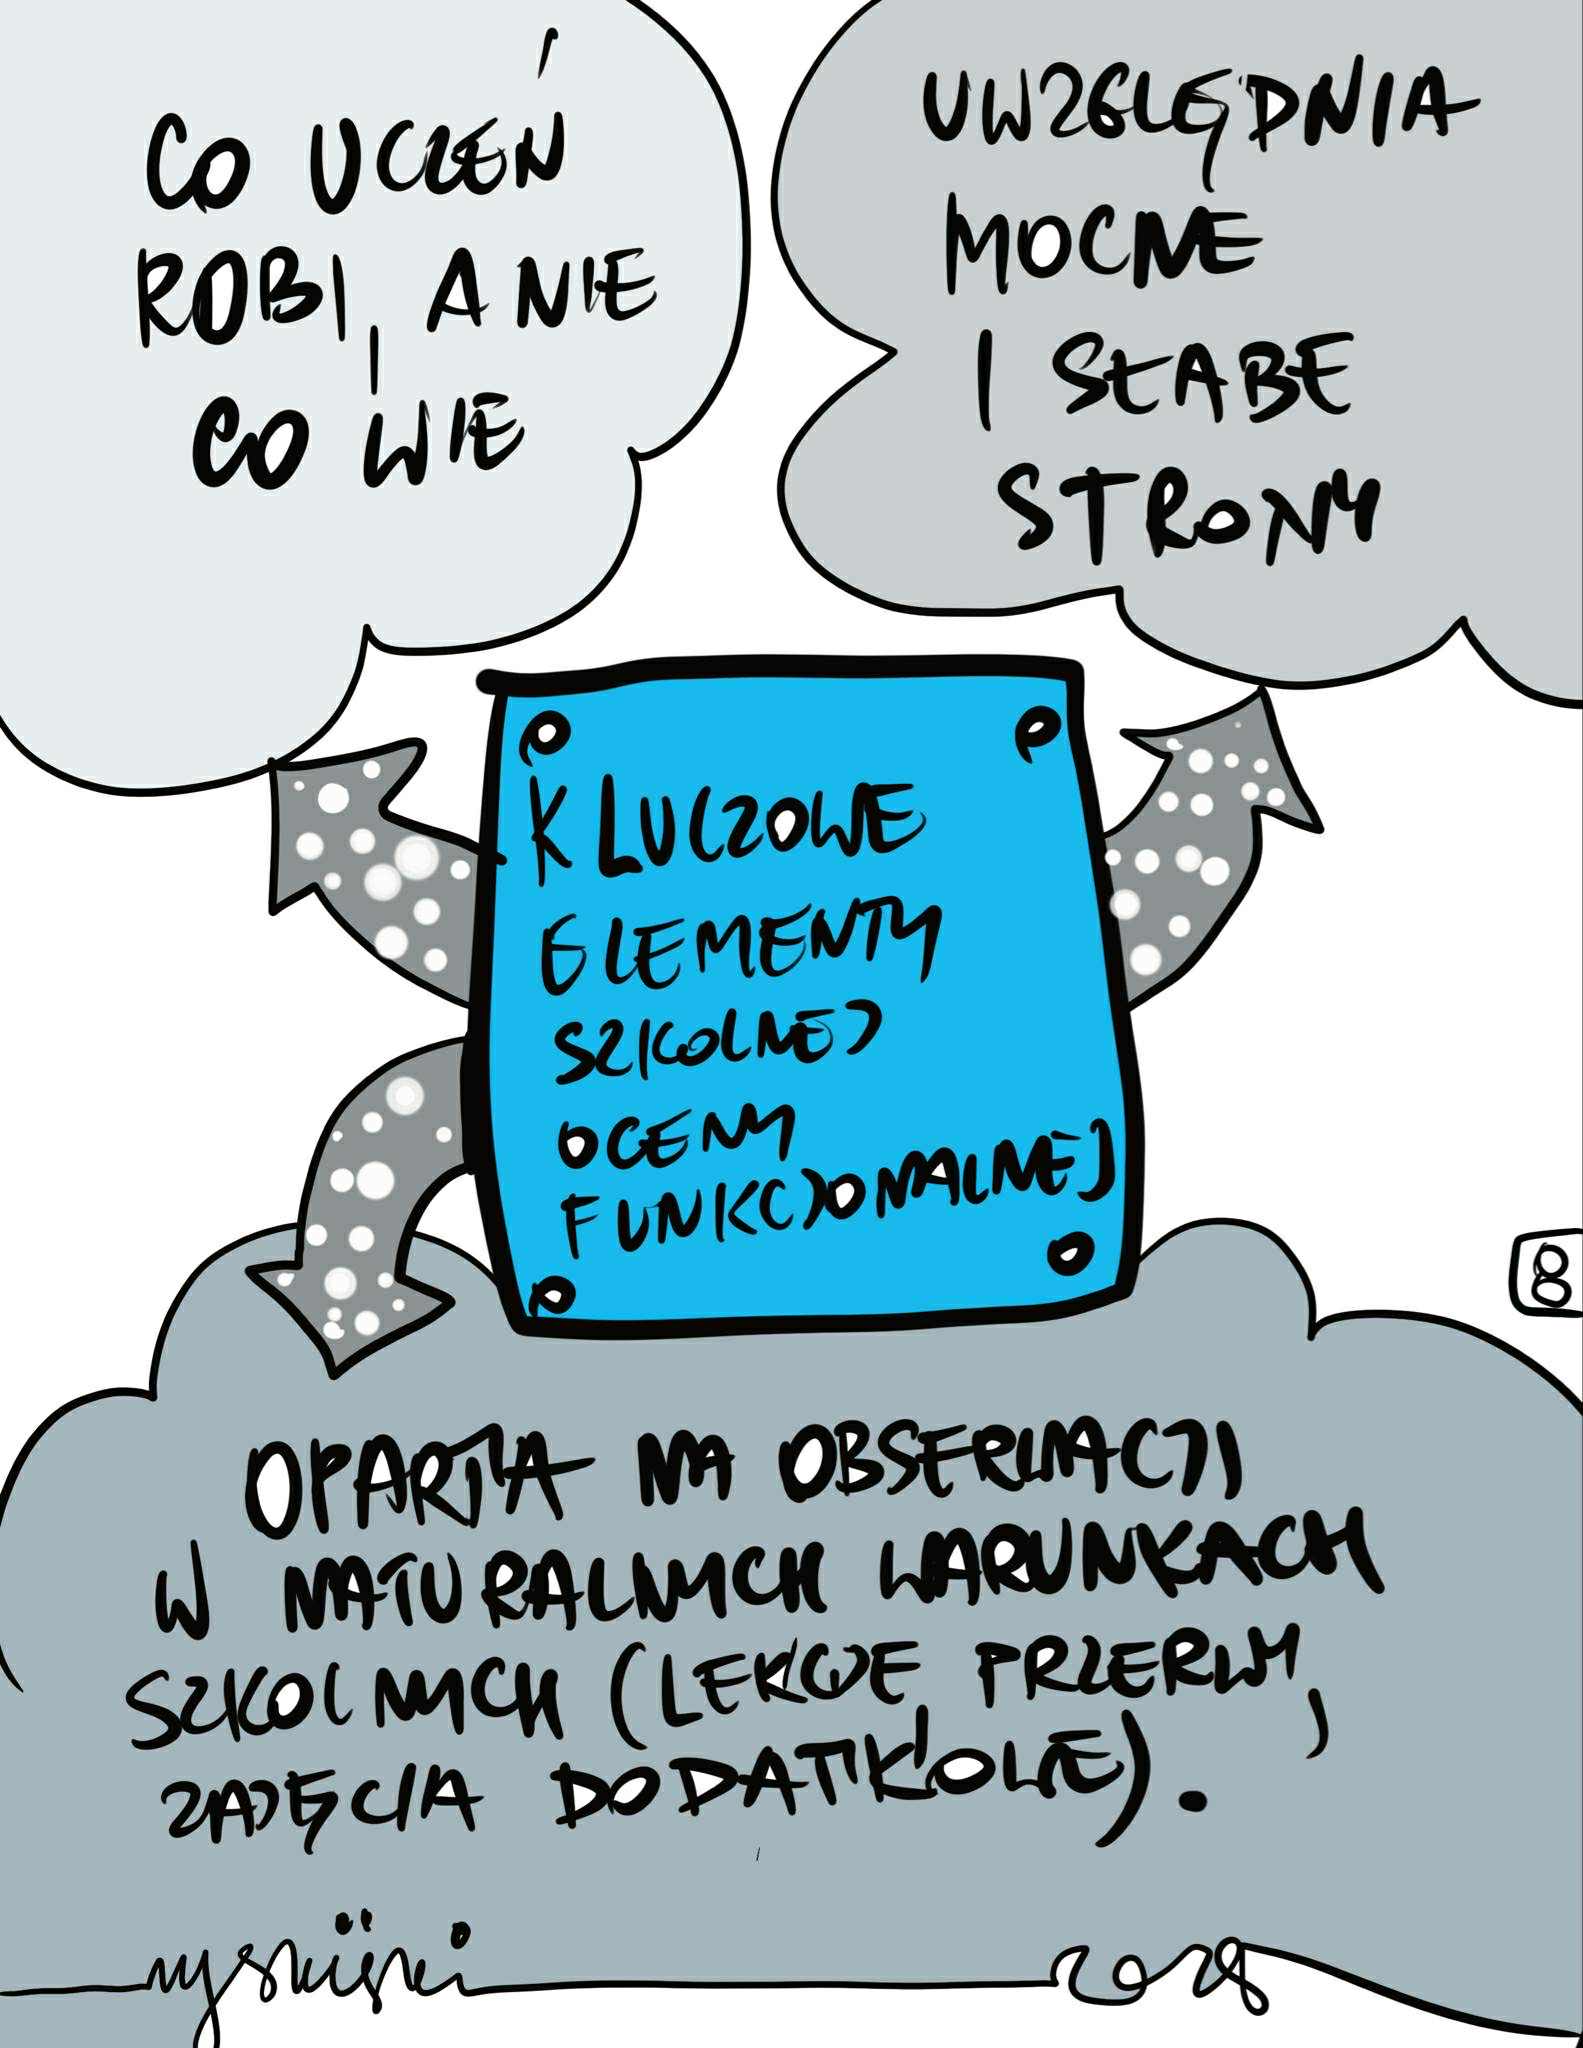 CO UCZEŃ
ROBI, A NIE
CO WIE
UWZGLĘDNIA
MOCNE
I SŁABE
STRONY
KLUCZOWE
ELEMENTY
SZKOLNEJ
OCENY
FUNKCJONALNEJ
8
OPARTA NA OBSERWACJI
W NATURALNYCH WARUNKACH
SZKOLNYCH (LEKCJE, PRZERWY,
ZAJĘCIA DODATKOWE).